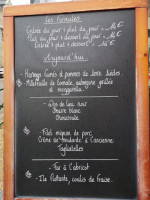 Les Formules
Entrée du jour + plat du jour = 14€
Plat du jour + dessert du jour = 14€
Entrée + plat + dessert
Aujourd'hui
- Harengs fumés et pommes de terre tièdes.
- Millefeuille de tomate, aubergine grillée
et mozzarella.
- Dos de lieu noir
Beurre blanc
- Filet mignon de porc,
Crème de moutarde à l'ancienne
Tagliatelles
à l'abricot
- Ile flottante, coulis de fraise.